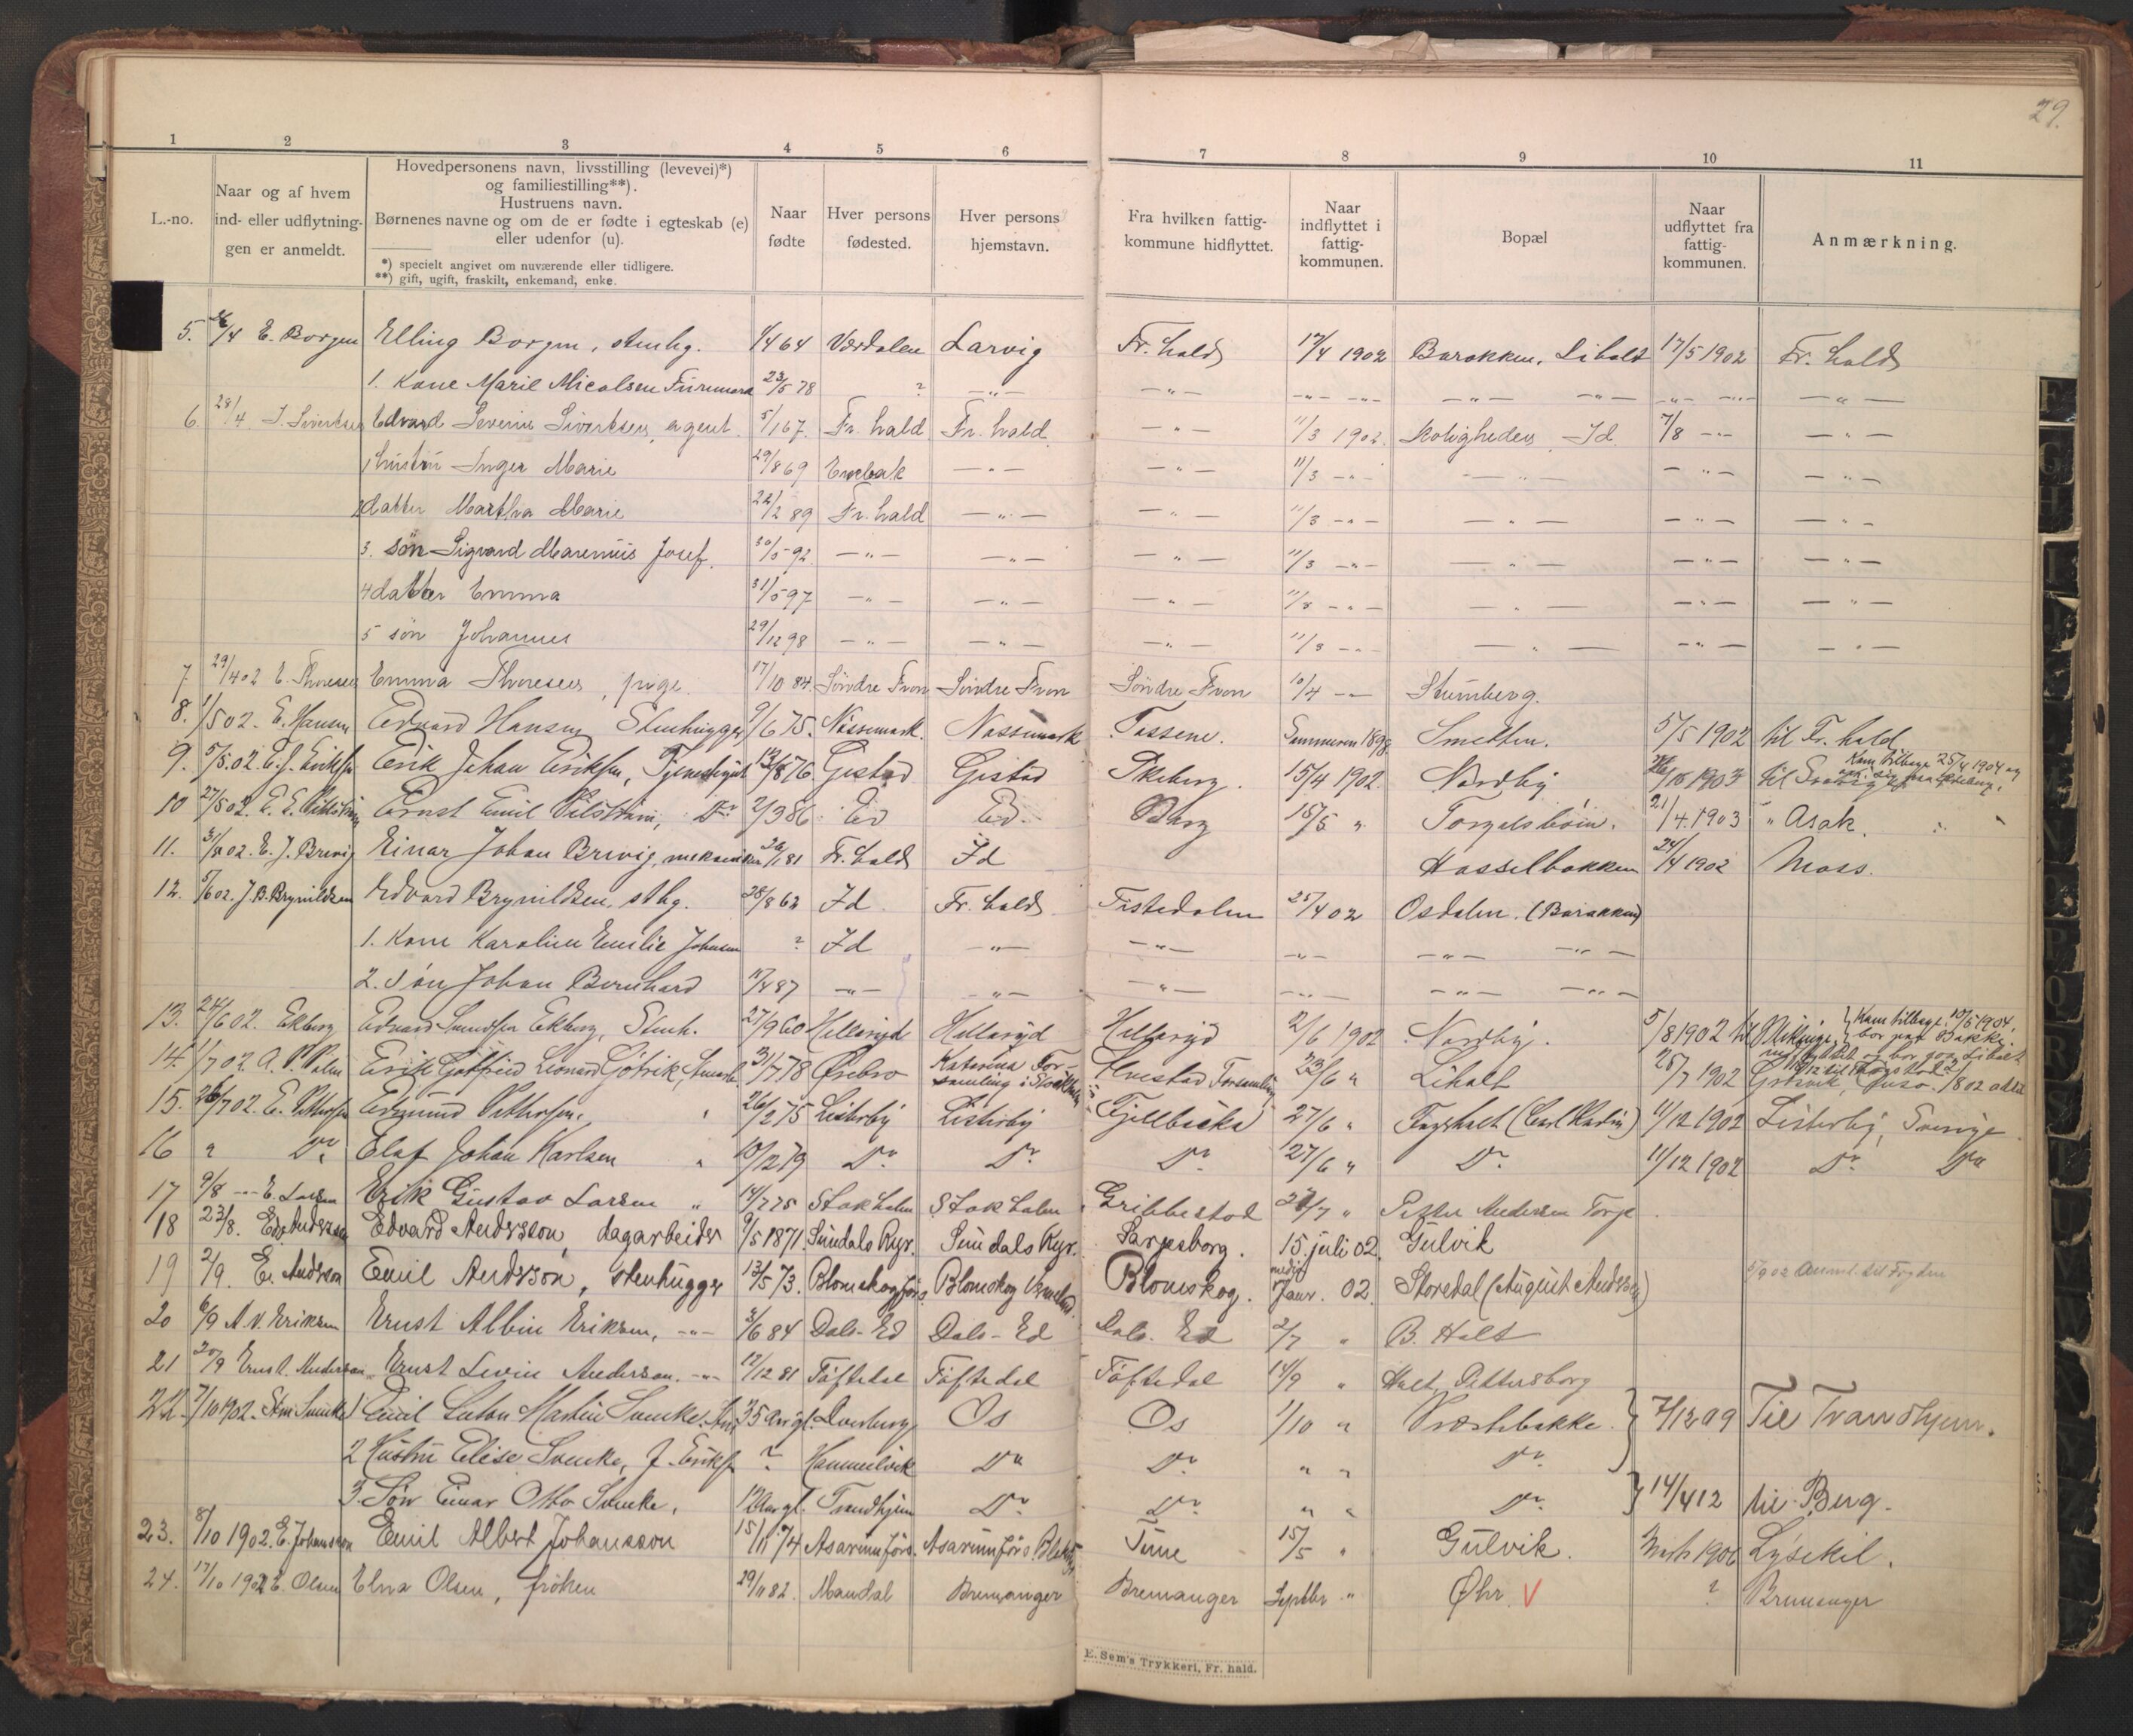 29.
1 2 3 4 5 6 7 8 9 10 11
L.-no.
Naar og af hvem
ind- eller udflytnin-
gen er anmeldt.
Hovedpersonens navn, livsstilling (levevei)*)
og familiestilling**).
Hustruens navn.
Børnenes navne og om de er fødte i egteskab (e)
eller udenfor (u).
*) specielt angivet om nuværende eller tidligere.
**) gift, ugift, fraskilt, enkemand, enke.
Naar
fødte
Hver persons
fødested.
Hver persons
hjemstavn.
Fra hvilken fattig-
kommune hidflyttet.
Naar
indflyttet i
fattig-
kommunen.
Bopæl
Naar
udflyttet fra
fattig-
kommunen.
Anmærkning.
5. 26/4 E. Borgen Elling Borgen, stenhg. 1/4 64 Værdalen Larvig Fr. halds 17/4 1902 Barakken, Liholt 17/5 1902 Fr. halds
1. Kone Marie Nicolsen 23/5 78 ? —"— —"— —"— —"— —"— —"— —"— —"—
6. 28/4 S. Sivertsen Edvard Severin Sivertsen, agent. 5/1 67. Fr. hald Fr. hald. —"— 11/3 1902. Roligheden, Id. 7/8 —"— —"—
1 hustru Inger Marie 29/8 69 Enebak —"— —"— 11/3 —"— —"— —"— —"—
2 datter Martha Marie 22/2 89 Fr. hald —"— —"— 11/3 —"— —"— —"— —"—
3. søn Sigvard Marenius Josef. 30/5 92 —"— —"— —"— 11/3 —"— —"— —"— —"—
4 datter Emma 31/5 97 —"— —"— —"— 11/3 —"— —"— —"— —"—
5 søn Johannes 29/12 98 —"— —"— —"— 11/3 —"— —"— —"— —"—
7 29/4 02 E. Thoresen Emma Thoresen, pige. 17/10 84. Søndre Fron Søndre Fron Søndre Fron 10/4 —"— Stumberg.
8. 1/5 02. E. Hansen Edvard Hansen, Stenhugger 9/6 75. Nössemark. Nössemark Tossene. Sommeren 1898 Smetten. 5/5 1902 til Fr. hald
9. 5/5.02. E. J. Eriksen Erik Johan Eriksen, Tjenestegut 13/8 76. Gestad Gestad Skeberg. 15/4 1902. Nordby 1903 til Kom tilbage 25/4 1904 og
10 27/5 02. E. E. Ernst Emil Do 2/9 86 Ed Ed. Berg 15/5 " Torgalsbøen. 21/4.1903 " Asak.
11. 31/5 02. E. J. Brevig Einar Johan Brevig, mekaniker 20/1 81 Fr. halds Id Hasselbakken 24/4 1902 Moss.
12. 5/6 02. J. B. Brynildsen Edvard Brynildsen, sthg. 28/8 62 Id Fr. halds Tistedalen 25/4 02 Osdalen. (Barakken)
1. Kone Karoline Emilie Johnsen ? Id —"— —"— —"— —"— —"—
2. Søn Johan Bernhard 11/4 87 —"— —"— —"— —"— —"— —"—
13. 24/6 02. Ekberg Edvard Ekberg, Stenh. 27/9 60 Hellaryd Hellaryd Hellaryd 2/6 1902 Nordby. 5/8 1902 til Kom tilbage 10/5 1904, bor paa Bakke.
14. 1/7 02. A. P. Palm Erik Gotfried Leonard Götrik, 31/7 78 Ørebro Katarina For-
samling i Stockholm Forsamling 23/6 " Liholt 28/7 1902
15. 26/7 02. E. Pettersen Edmund Pettersen. " 26/2 75 Listerby Listerby Fjellbacka 27/6 " Fagerholt (Carl Hedin) 11/12 1902 Listerby, Sverige.
16 " Do Elof Johan Karlsen " 10/2 79 Do. Do. Do. 27/6 " Do. 11/12 1902 Do. Do
17 9/8 —"— E. Larsen Erik Gustav Larsen " 14/7 75 Stokholm Stokholm Gribbestad 22/7 " Petter Andersen Torp.
18 23/8. Edv. Andersson Edvard Andersson, dagarbeider 9/5 1871. Sundals Ryr. Sundals Ryr. Sarpsborg. 15. juli 02. Gulvik
19 2/9. E. Anderson Emil Anderson, stenhugger 13/5 73. Blomskog förs. Blomskog Vermland. Blomskog. medio Janr. 02. Storedal (August Andersen) 5/9 02 Anml. til Fogden
20 6/9 A. V. Eriksen Ernst Albin Eriksen, —"— 3/6 84 Dals-Ed Dals-Ed Dals. Ed 2/7 " B. Holt
21 20/9 Ernst. Anderson Ernst Levin Anderson. —"— 12/12 81 Töftedal Töftedal Töftedal 14/9 " Holt, Pettersborg
22. 7/10 1902. 1 Emil Anton Martin Svenke, 35 Aar gl. Os Os 1/10 " Præstebakke. 7/12 09 Til Trondhjem.
2 Hustru Elise Svenke, f. Eriksen ? Hammelvik Do Do. " " Do.
3. Søn Einar Otto Svenke, 12 Aar gl. Trondhjem Do Do " " Do. 14/4 12 til Berg.
23. 8/10 1902. E. Johansson Emil Albert Johansson 15/11 74 Asarum förs. Asarum förs. Tune 15/5 " Gulvik. 1906 Lysekil.
24. 17/10 1902 E. Olsen Elna Olsen, frøken 29/11 82. Mandal Bremanger Bremanger Septbr " Øhr. V ? Bremanger
E. Sem's Trykkeri, Fr. hald.